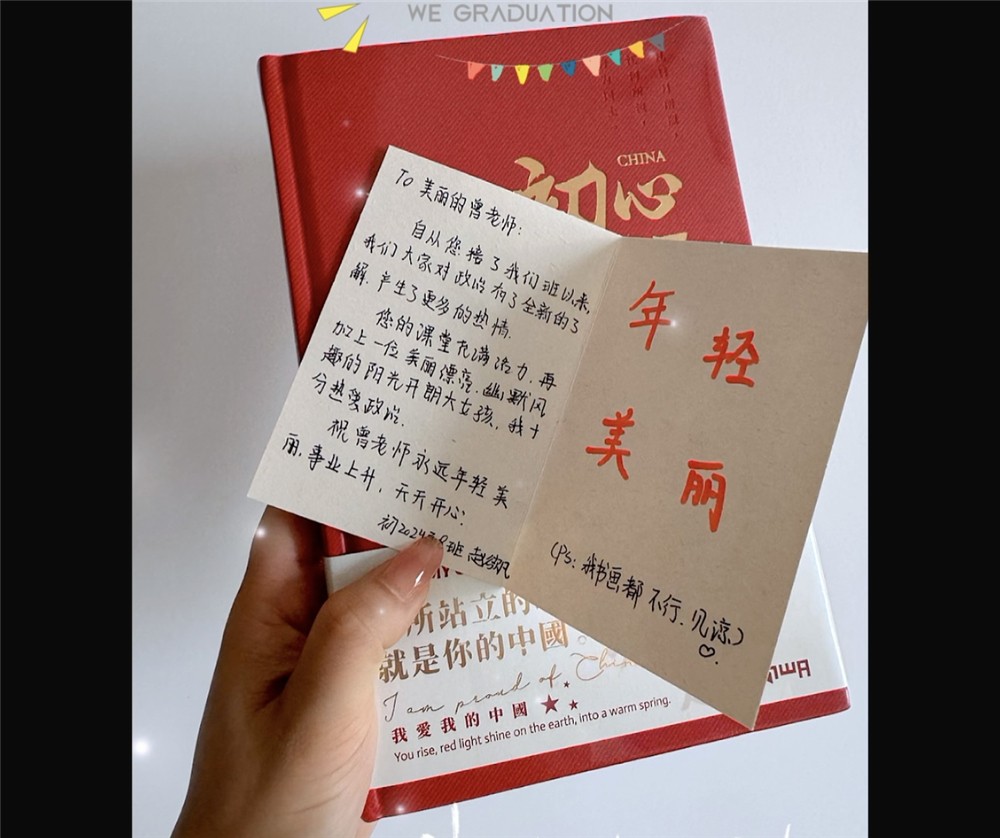 WE GRADUATION
CHINA
初心
To 美丽的曾老师:
自从您接了我们班以来,
我们大家对政治有了全新的了
解.产生了更多的热情.
您的课堂充满活力.再
加上一位美丽漂亮.幽默风
趣的阳光开朗大女孩.我十
分热爱政治.
祝曾老师永远年轻美
丽.事业上升,天天开心!
初2024 班 赵
年轻
美丽
(PS: 我书画都不行.见谅)
♡.
所站立的
就是你的中國。
I am proud of China
我愛我的中國
You rise, red light shine on the earth, into a warm spring.